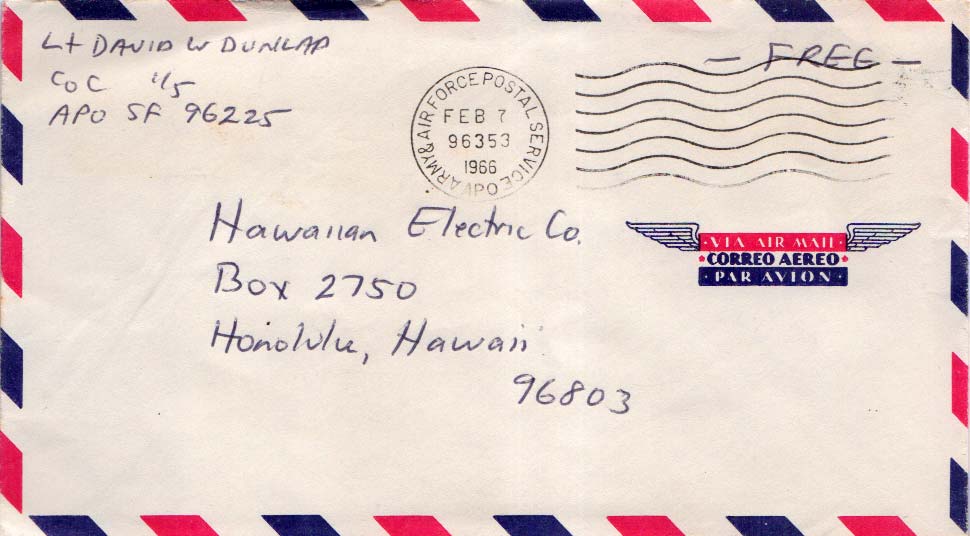 Lt DAVID W DUNLAP
Co C 1/5
APO SF 96225
ARMY & AIR FORCE POSTAL SERVICE
FEB 7
96353
1966
APO
— FREE —
Hawaiian Electric Co.
Box 2750
Honolulu, Hawaii
96803
· VIA AIR MAIL ·
CORREO AEREO
· PAR AVION ·